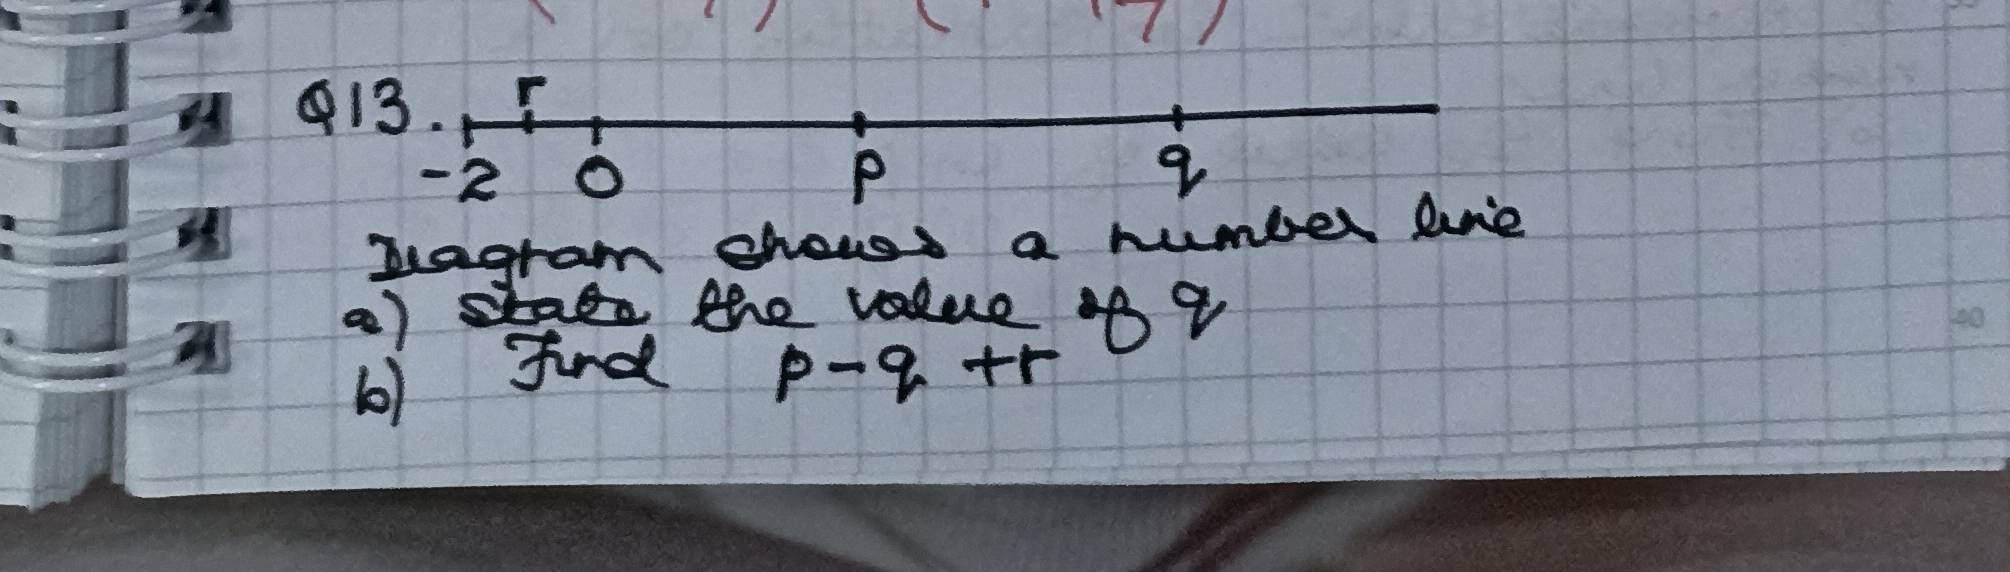 Q13.
r
-2 0 p q
Diagram shows a number line
a) State the value of q
b) Find p-q+r